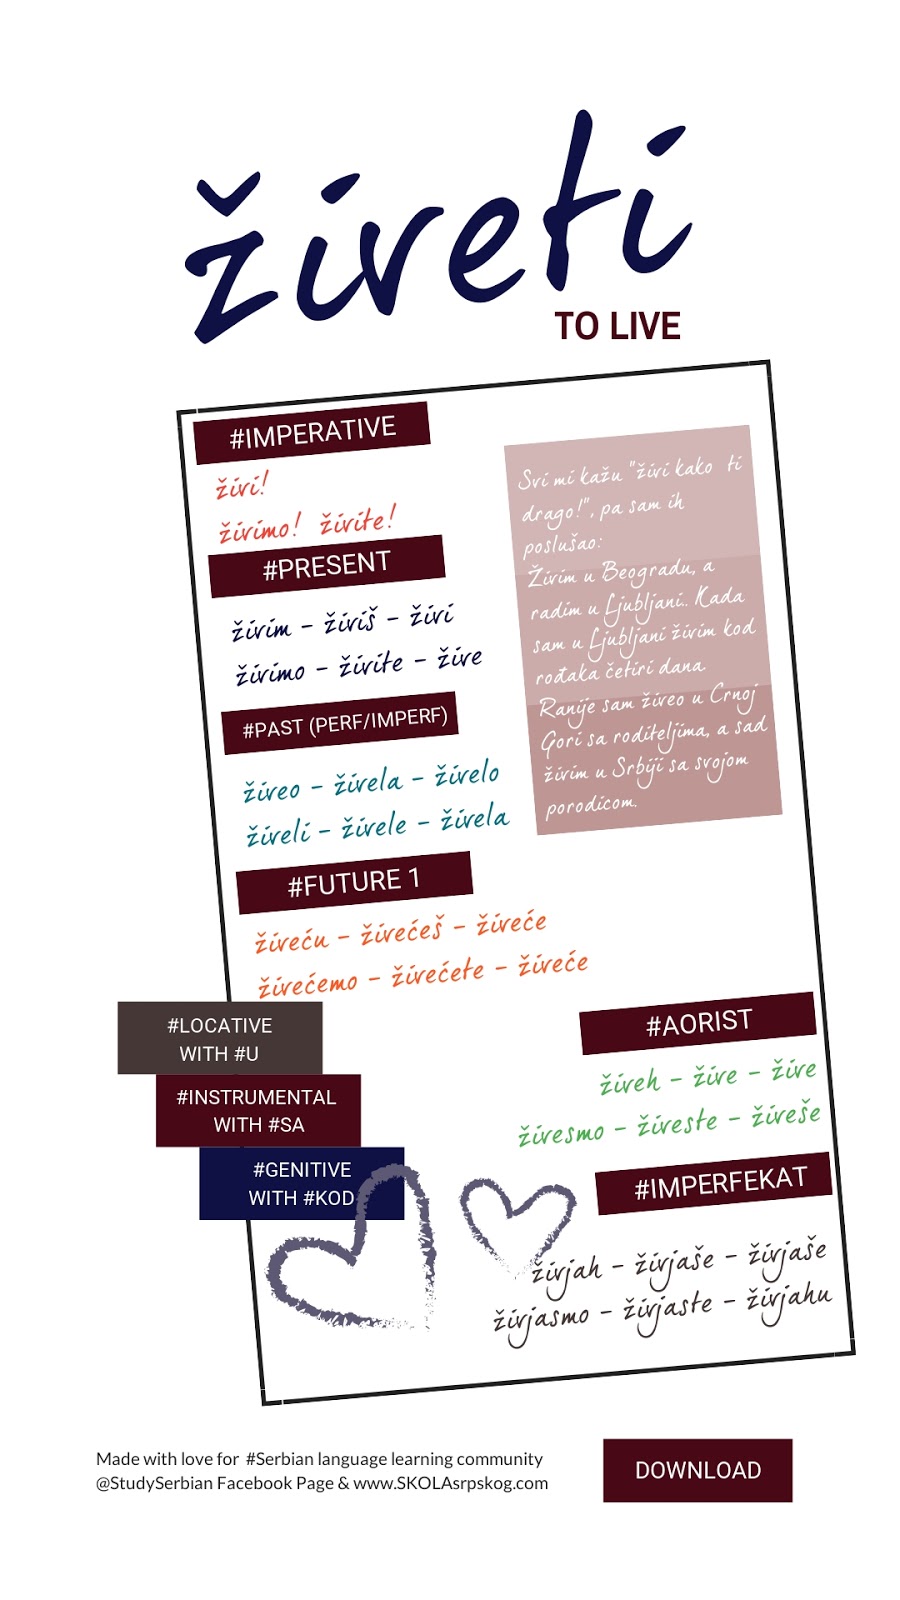 živeti
TO LIVE
#IMPERATIVE
živi!
živimo! živite!
#PRESENT
živim - živiš - živi
živimo - živite - žive
#PAST (PERF/IMPERF)
živeo - živela - živelo
živeli - živele - živela
#FUTURE 1
živeću - živećeš - živeće
živećemo - živećete - živeće
Svi mi kažu "živi kako ti
drago!", pa sam ih
poslušao:
Živim u Beogradu, a
radim u Ljubljani.. Kada
sam u Ljubljani živim kod
rođaka četiri dana.
Ranije sam živeo u Crnoj
Gori sa roditeljima, a sad
živim u Srbiji sa svojom
porodicom.
#LOCATIVE
WITH #U
#INSTRUMENTAL
WITH #SA
#GENITIVE
WITH #KOD
#AORIST
živeh - žive - žive
živesmo - živeste - živeše
#IMPERFEKAT
živjah - živjaše - živjaše
živjasmo - živjaste - živjahu
Made with love for #Serbian language learning community
@StudySerbian Facebook Page & www.SKOLAsrpskog.com
DOWNLOAD